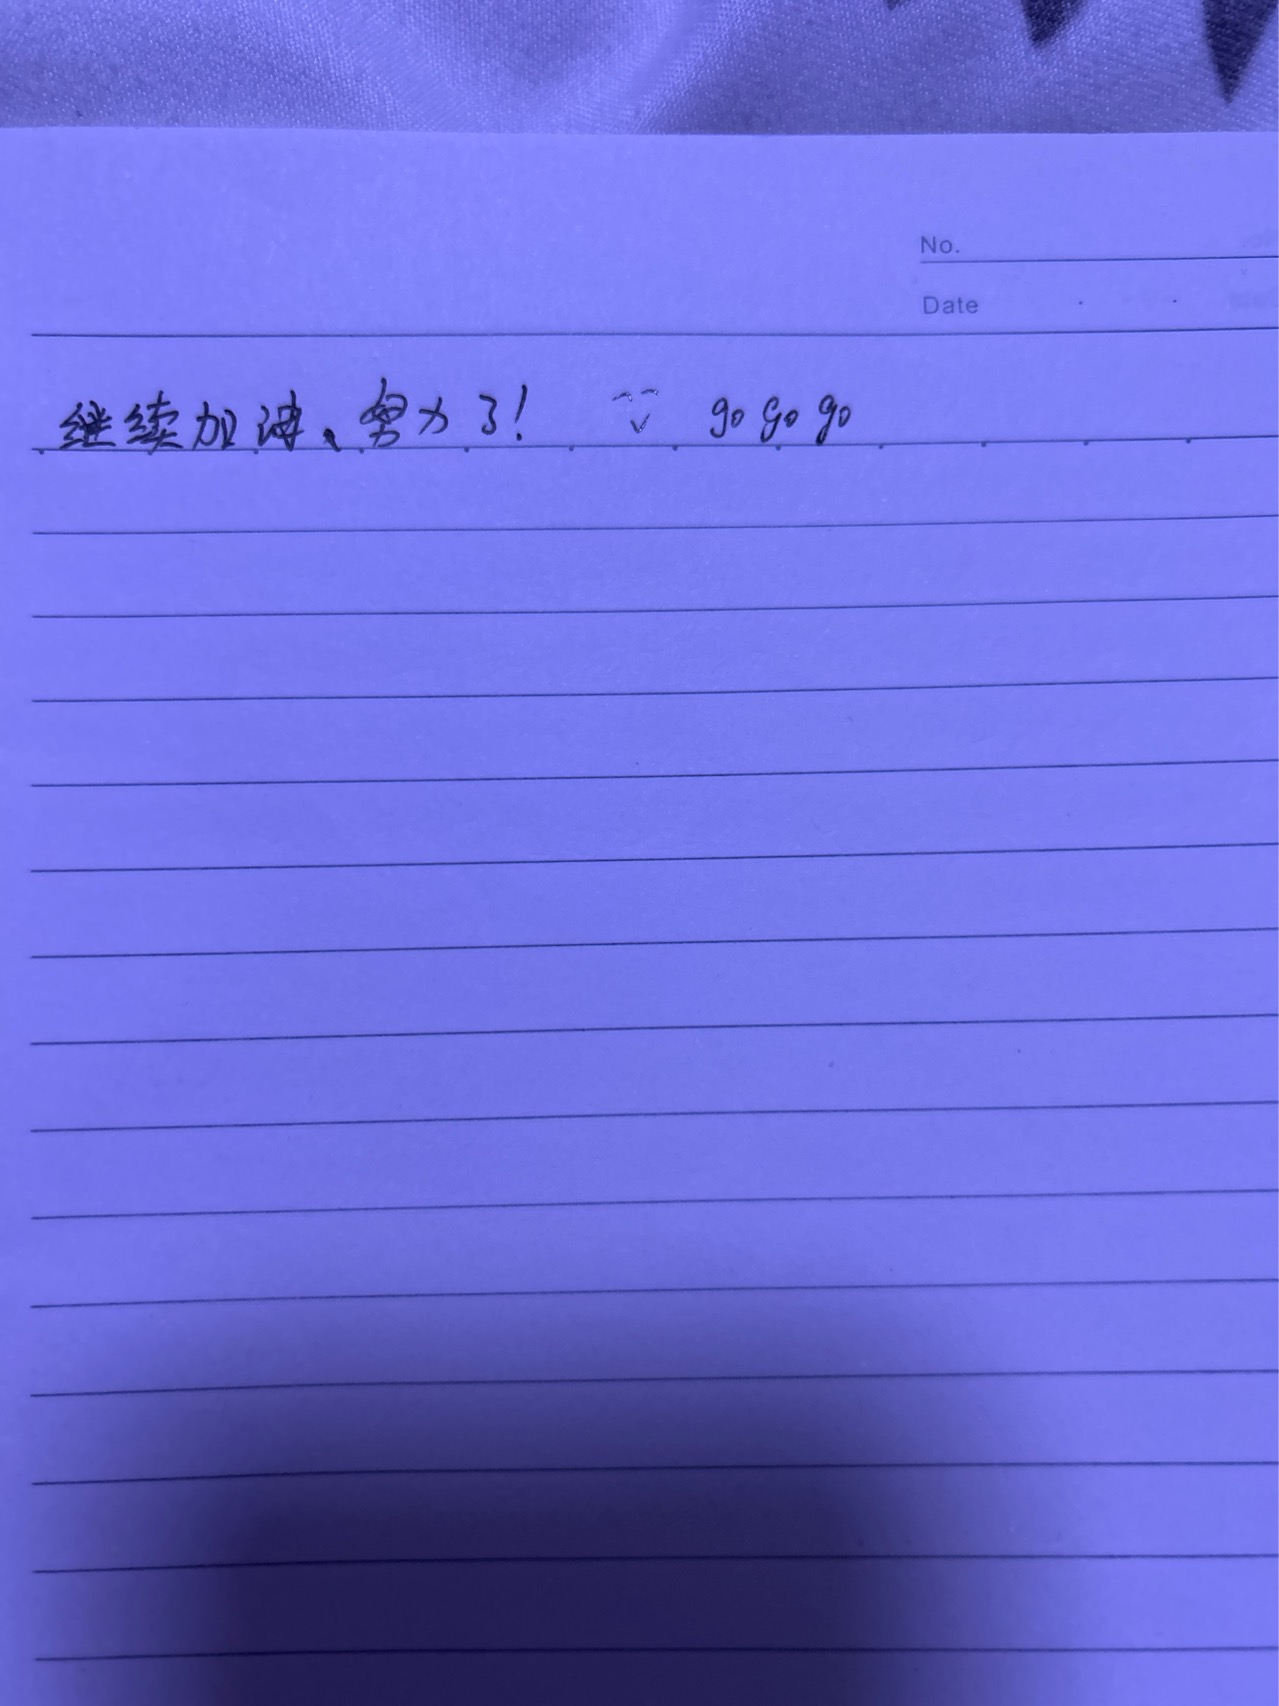 No.
Date
继续加速、努力了! go go go